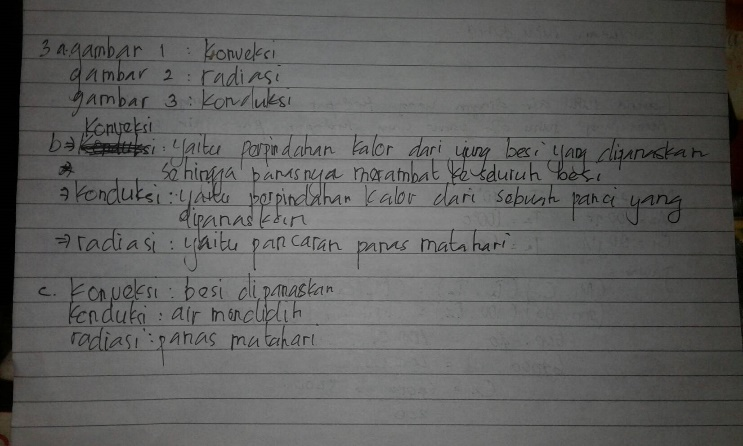 3 a. gambar 1 : konveksi
gambar 2 : radiasi
gambar 3 : konduksi
Konveksi
b ⇒ : yaitu perpindahan kalor dari ujung besi yang dipanaskan
⇒ sehingga panasnya merambat ke seluruh besi
⇒ Konduksi : yaitu perpindahan kalor dari sebuah panci yang
dipanaskan
⇒ radiasi : yaitu pancaran panas matahari
c. konveksi : besi dipanaskan
konduksi : air mendidih
radiasi : panas matahari